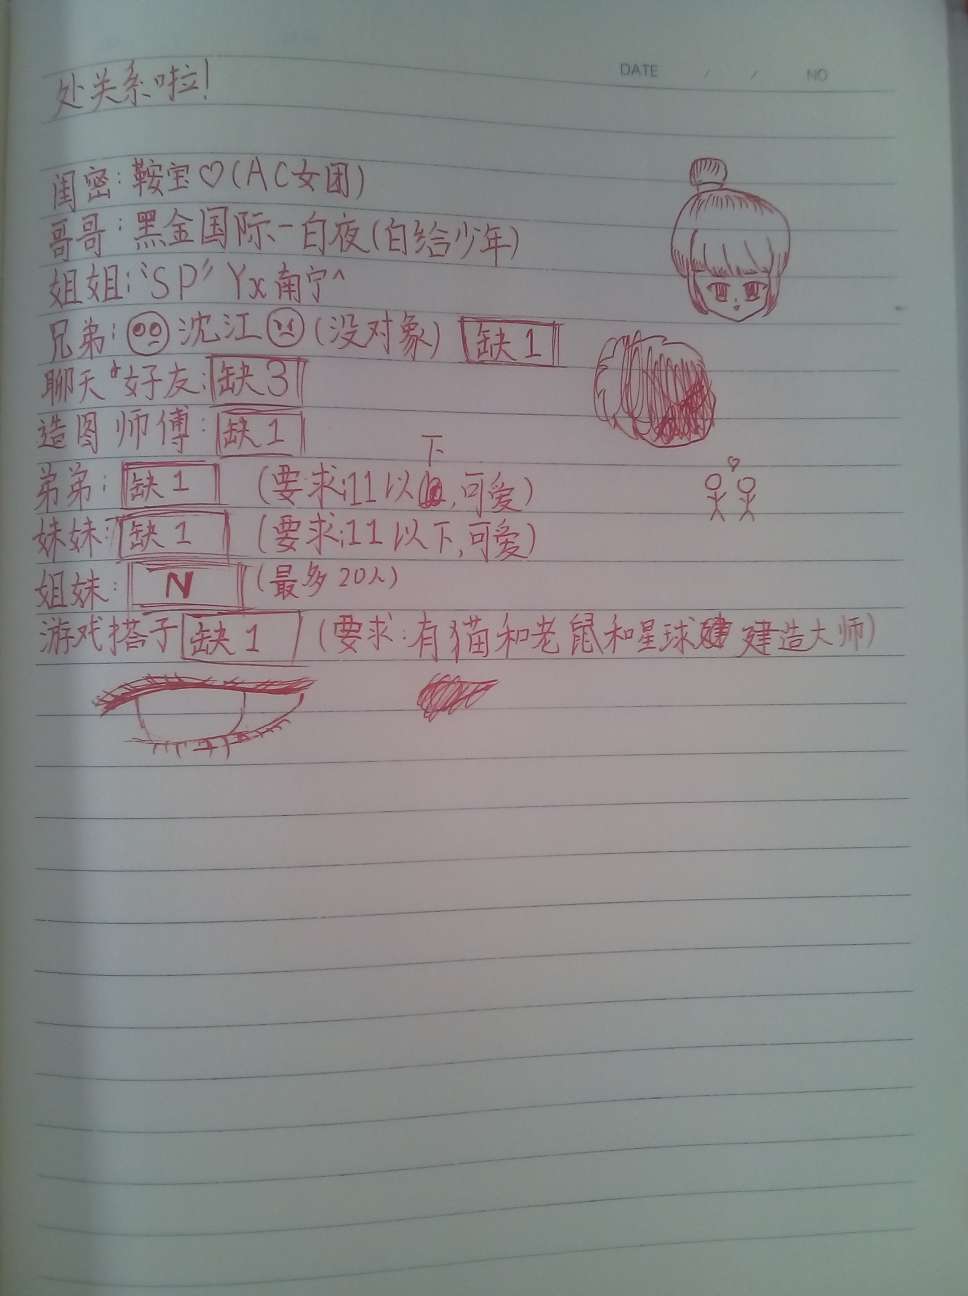 DATE / / NO
处关系啦!
闺密:鞍宝♡(AC女团)
哥哥:黑金国际一白夜(白给少年)
姐姐:“SP”Yx南宁^
兄弟:🙄沈江😠(没对象) 缺1
聊天好友:缺3
造图师傅:缺1
弟弟:缺1 (要求:11以下,可爱)
妹妹:缺1 (要求:11以下,可爱)
姐妹:N (最多20人)
游戏搭子缺1 (要求:有猫和老鼠和星球建造大师)